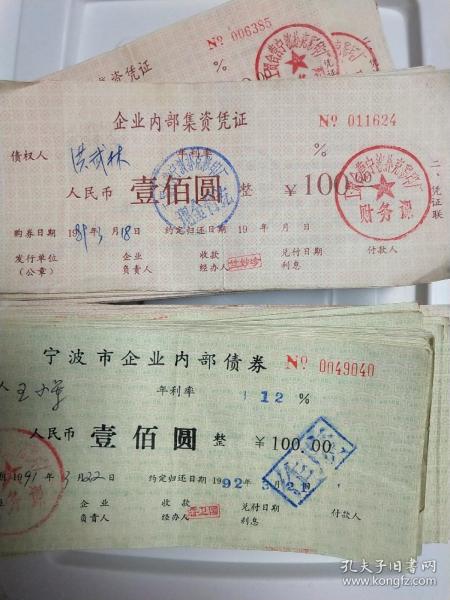 Nº 006385
集资凭证
%
企业内部集资凭证
Nº 011624
债权人 洪成林
年利率 %
人民币 壹佰圆 整 ￥100.00
财务课
二、凭证联
购券日期 1989年3月18日 约定归还日期 19 年 月 日
发行单位 企业 收款 兑付日期 付款人
(公章) 负责人 经办人 利息
宁波市企业内部债券
Nº 0049040
人 王
年利率 12 %
人民币 壹佰圆 整 ￥100.00
作废
期 1991年3月22日 约定归还日期 1992年3月21日
企业 收款 兑付日期 付款人
负责人 经办人 利息
孔夫子旧书网
www.kongfz.com